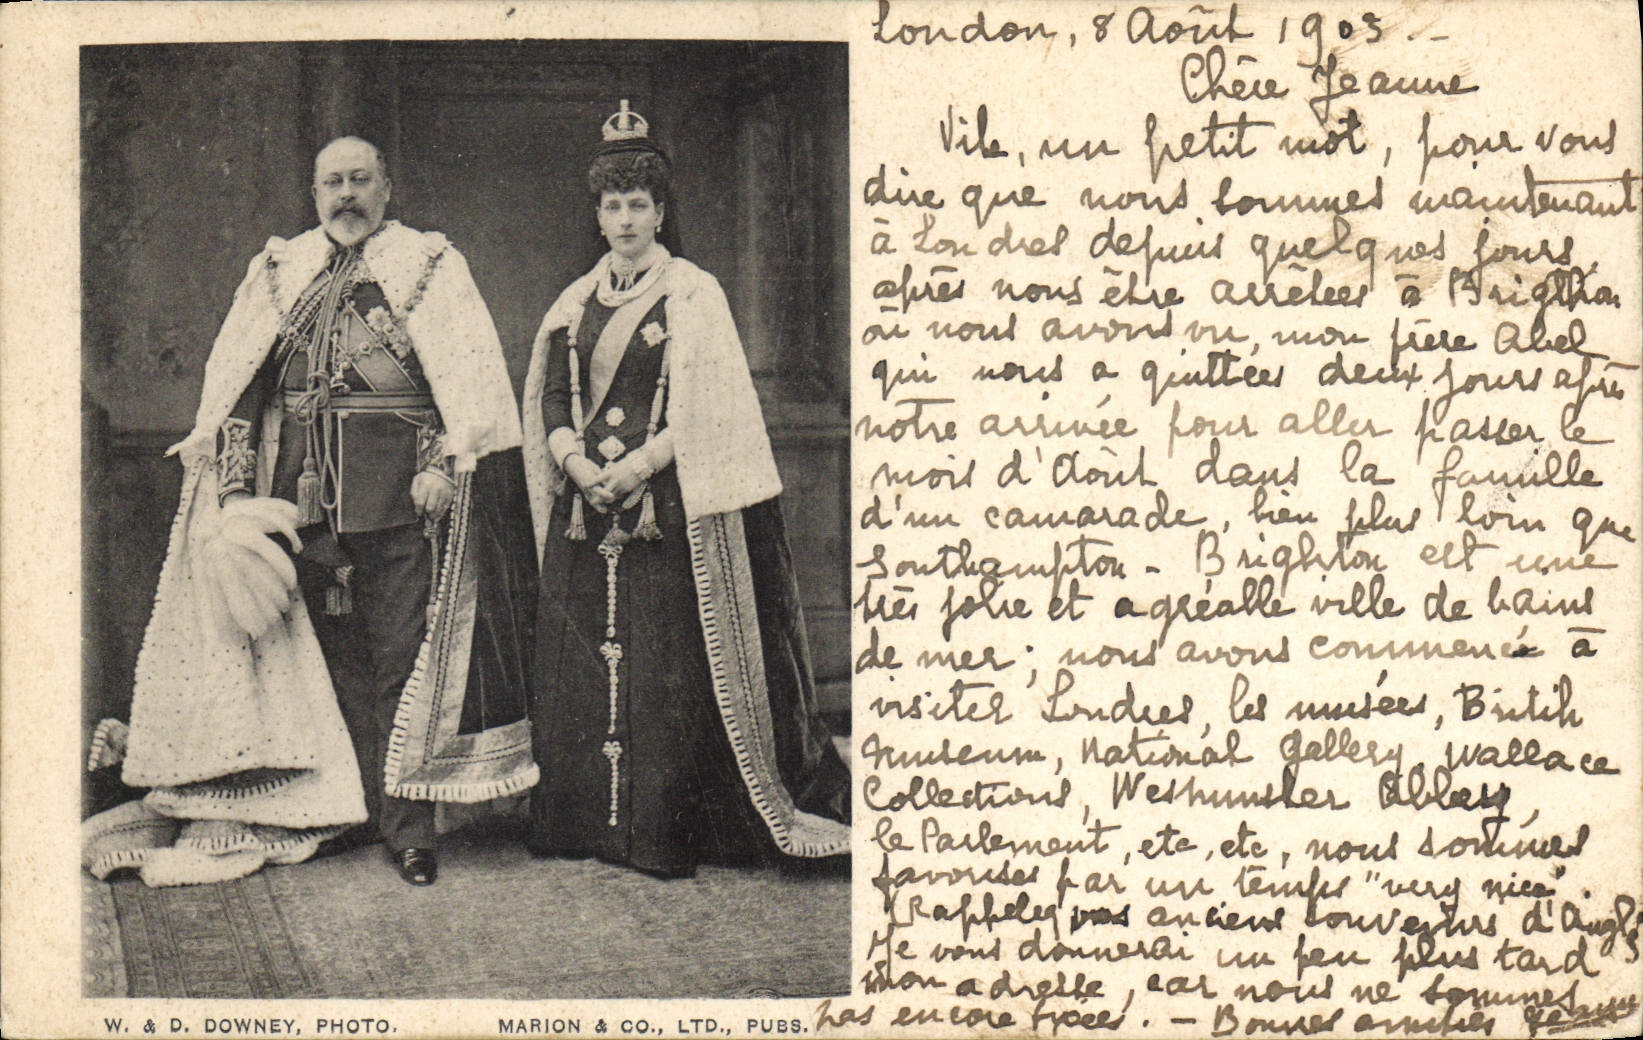 London, 8 Août 1903. -
Chère Jeanne
Vite, un petit mot, pour vous
dire que nous sommes maintenant
à Londres depuis quelques jours,
après nous être arrêtées à Brigthon
où nous avons vu, mon frère Abel
qui nous a quittées deux jours après
notre arrivée pour aller passer le
mois d'Août dans la famille
d'un camarade, bien plus loin que
Southampton - Brighton est une
très jolie et agréable ville de bains
de mer; nous avons commencé à
visiter Londres, les musées, Britih
Museum, National Gallery, Wallace
Collections, Westminster Abbey,
le Parlement, etc, etc, nous sommes
favorisés par un temps "very nice".
Rappelez vos anciens souvenirs d'Angl
Je vous donnerai un peu plus tard
mon adresse, car nous ne sommes
pas encore fixées. - Bonnes amitiés
W. & D. DOWNEY, PHOTO. MARION & CO., LTD., PUBS.